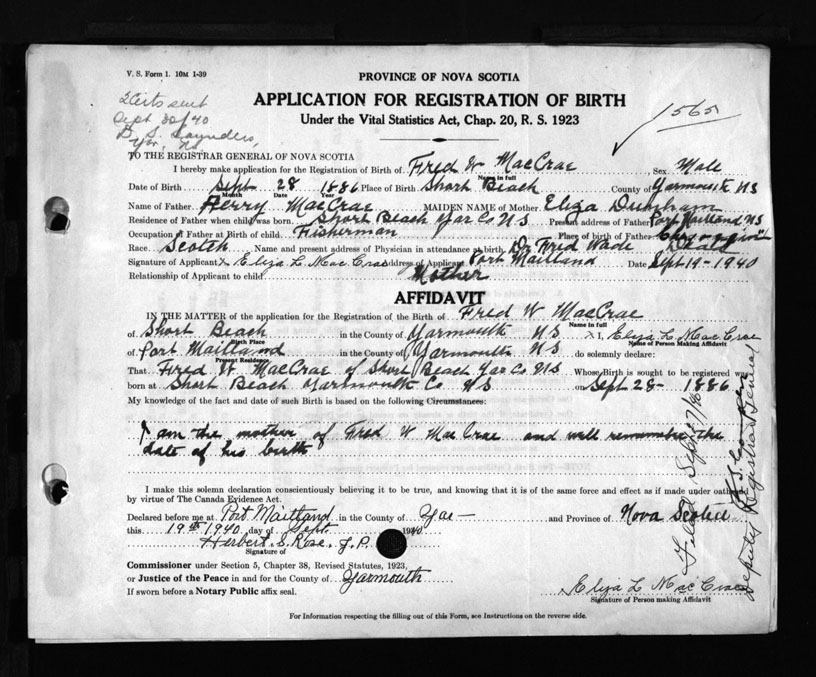 V. S. Form 1. 10M 1-39
PROVINCE OF NOVA SCOTIA
APPLICATION FOR REGISTRATION OF BIRTH
Under the Vital Statistics Act, Chap. 20, R. S. 1923
1565
2 Certs sent
Sept 30/40
S. Saunders,
Yar, NS.
TO THE REGISTRAR GENERAL OF NOVA SCOTIA
I hereby make application for the Registration of Birth of Fred W MacCrae Sex Male
Name in full
Date of Birth Sept 28 1886 Place of Birth Short Beach County of Yarmouth NS
Month Date Year
Name of Father Henry MacCrae MAIDEN NAME of Mother Eliza Durham
Residence of Father when child was born Short Beach Yar Co NS Present address of Father Port Maitland NS
Occupation of Father at Birth of child Fisherman Place of birth of Father
Race Scotch Name and present address of Physician in attendance at birth Dr Fred Wade Dead
Signature of Applicant X Eliza L MacCrae Address of Applicant Port Maitland Date Sept 19-1940
Relationship of Applicant to child Mother
AFFIDAVIT
IN THE MATTER of the application for the Registration of the Birth of Fred W MacCrae
Name in full
of Short Beach in the County of Yarmouth NS X I, Eliza L MacCrae
Birth Place Name of Person Making Affidavit
of Port Maitland in the County of Yarmouth NS do solemnly declare:
Present Residence
That Fred W MacCrae of Short Beach Yar Co NS Whose Birth is sought to be registered was
born at Short Beach Yarmouth Co NS on Sept 28- 1886
My knowledge of the fact and date of such Birth is based on the following Circumstances:
I am the mother of Fred W MacCrae and well remember the
date of his birth
I make this solemn declaration conscientiously believing it to be true, and knowing that it is of the same force and effect as if made under oath
by virtue of The Canada Evidence Act.
Declared before me at Port Maitland in the County of Yar- and Province of Nova Scotia
this 19th 1940 day of Sept 1940
Herbert S. Rose, J.P.
Signature of
Commissioner under Section 5, Chapter 38, Revised Statutes, 1923,
or Justice of the Peace in and for the County of Yarmouth
If sworn before a Notary Public affix seal.
Eliza L MacCrae
Signature of Person making Affidavit
For Information respecting the filling out of this Form, see Instructions on the reverse side.
Filed Sept 27/40
Deputy Registrar General